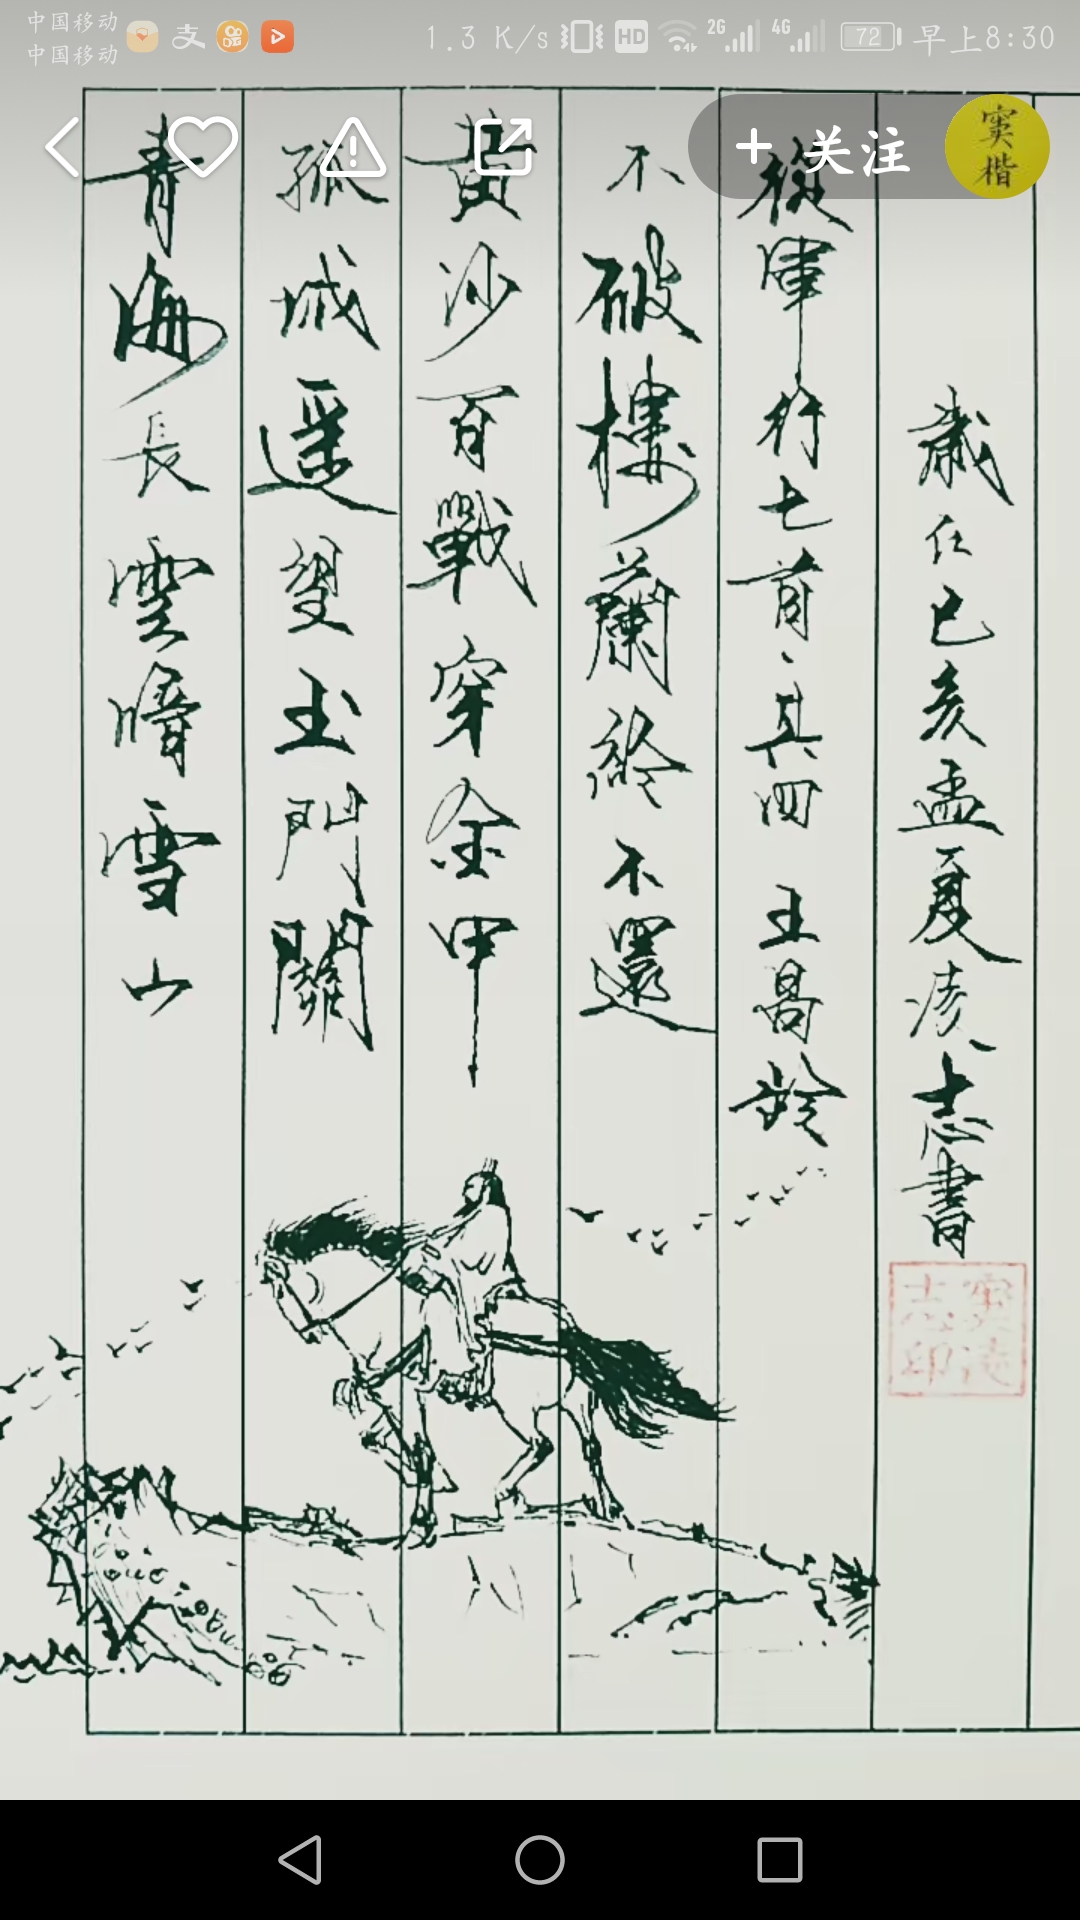 中国移动
中国移动
支 1.3 K/s HD 2G 4G 72 早上8:30
+ 关注
窦楷
青海長雲暗雪山
孤城遥望玉門關
黄沙百戰穿金甲
不破樓蘭終不還
從軍行七首、其四 王昌齡
歲在己亥孟夏凌志書
窦凌志印